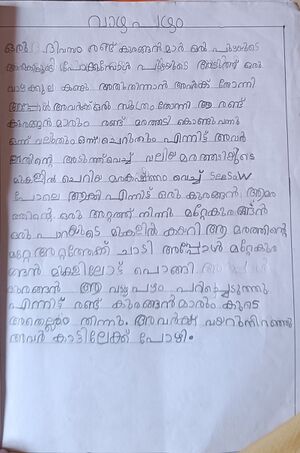 വാഴ പഴം
ഒരു ദിവസം രണ്ട് കുരങ്ങൻമാർ ഒരു പുഴയുടെ
അരികിലൂടെ പോകുമ്പോൾ പുഴയുടെ അടുത്ത് ഒരു
വാഴക്കുല കണ്ടു അതിതിന്നാൻ അവർക്ക് തോന്നി
അപ്പോൾ അവർക്ക് ഒരു സൂത്രം തോന്നി ആ രണ്ട്
കുരങ്ങൻമാരും രണ്ട് മരത്തടി കൊണ്ടു വന്നു
ഒന്ന് വലുതും ഒന്ന് ചെറുതും എന്നിട്ട് അവർ
അതിന്റെ അടുത്ത് വെച്ച് വലിയ മരത്തടിയുടെ
മുകളിൽ ചെറിയ മരകഷ്ണം വെച്ച് seesaw
പോലെ ആക്കി എന്നിട്ട് ഒരു കുരങ്ങൻ ആ മര
ത്തിന്റെ ഒരു അറ്റത്ത് നിന്നു മറ്റേകുരങ്ങൻ
ഒരു പാറയുടെ മുകളിൽ കയറി ആ മരത്തിന്റെ
മറ്റേ അറ്റത്തേക്ക് ചാടി അപ്പോൾ മറ്റേകുര
ങ്ങൻ മുകളിലോട് പൊങ്ങി
കുരങ്ങൻ ആ വാഴ പഴം പറിച്ചെടുത്തു
എന്നിട്ട് രണ്ട് കുരങ്ങൻമാരും കൂടെ
അതെല്ലാം തിന്നു. അവർക്ക് വയറുനിറഞ്ഞു
അവർ കാട്ടിലേക്ക് പോയി.